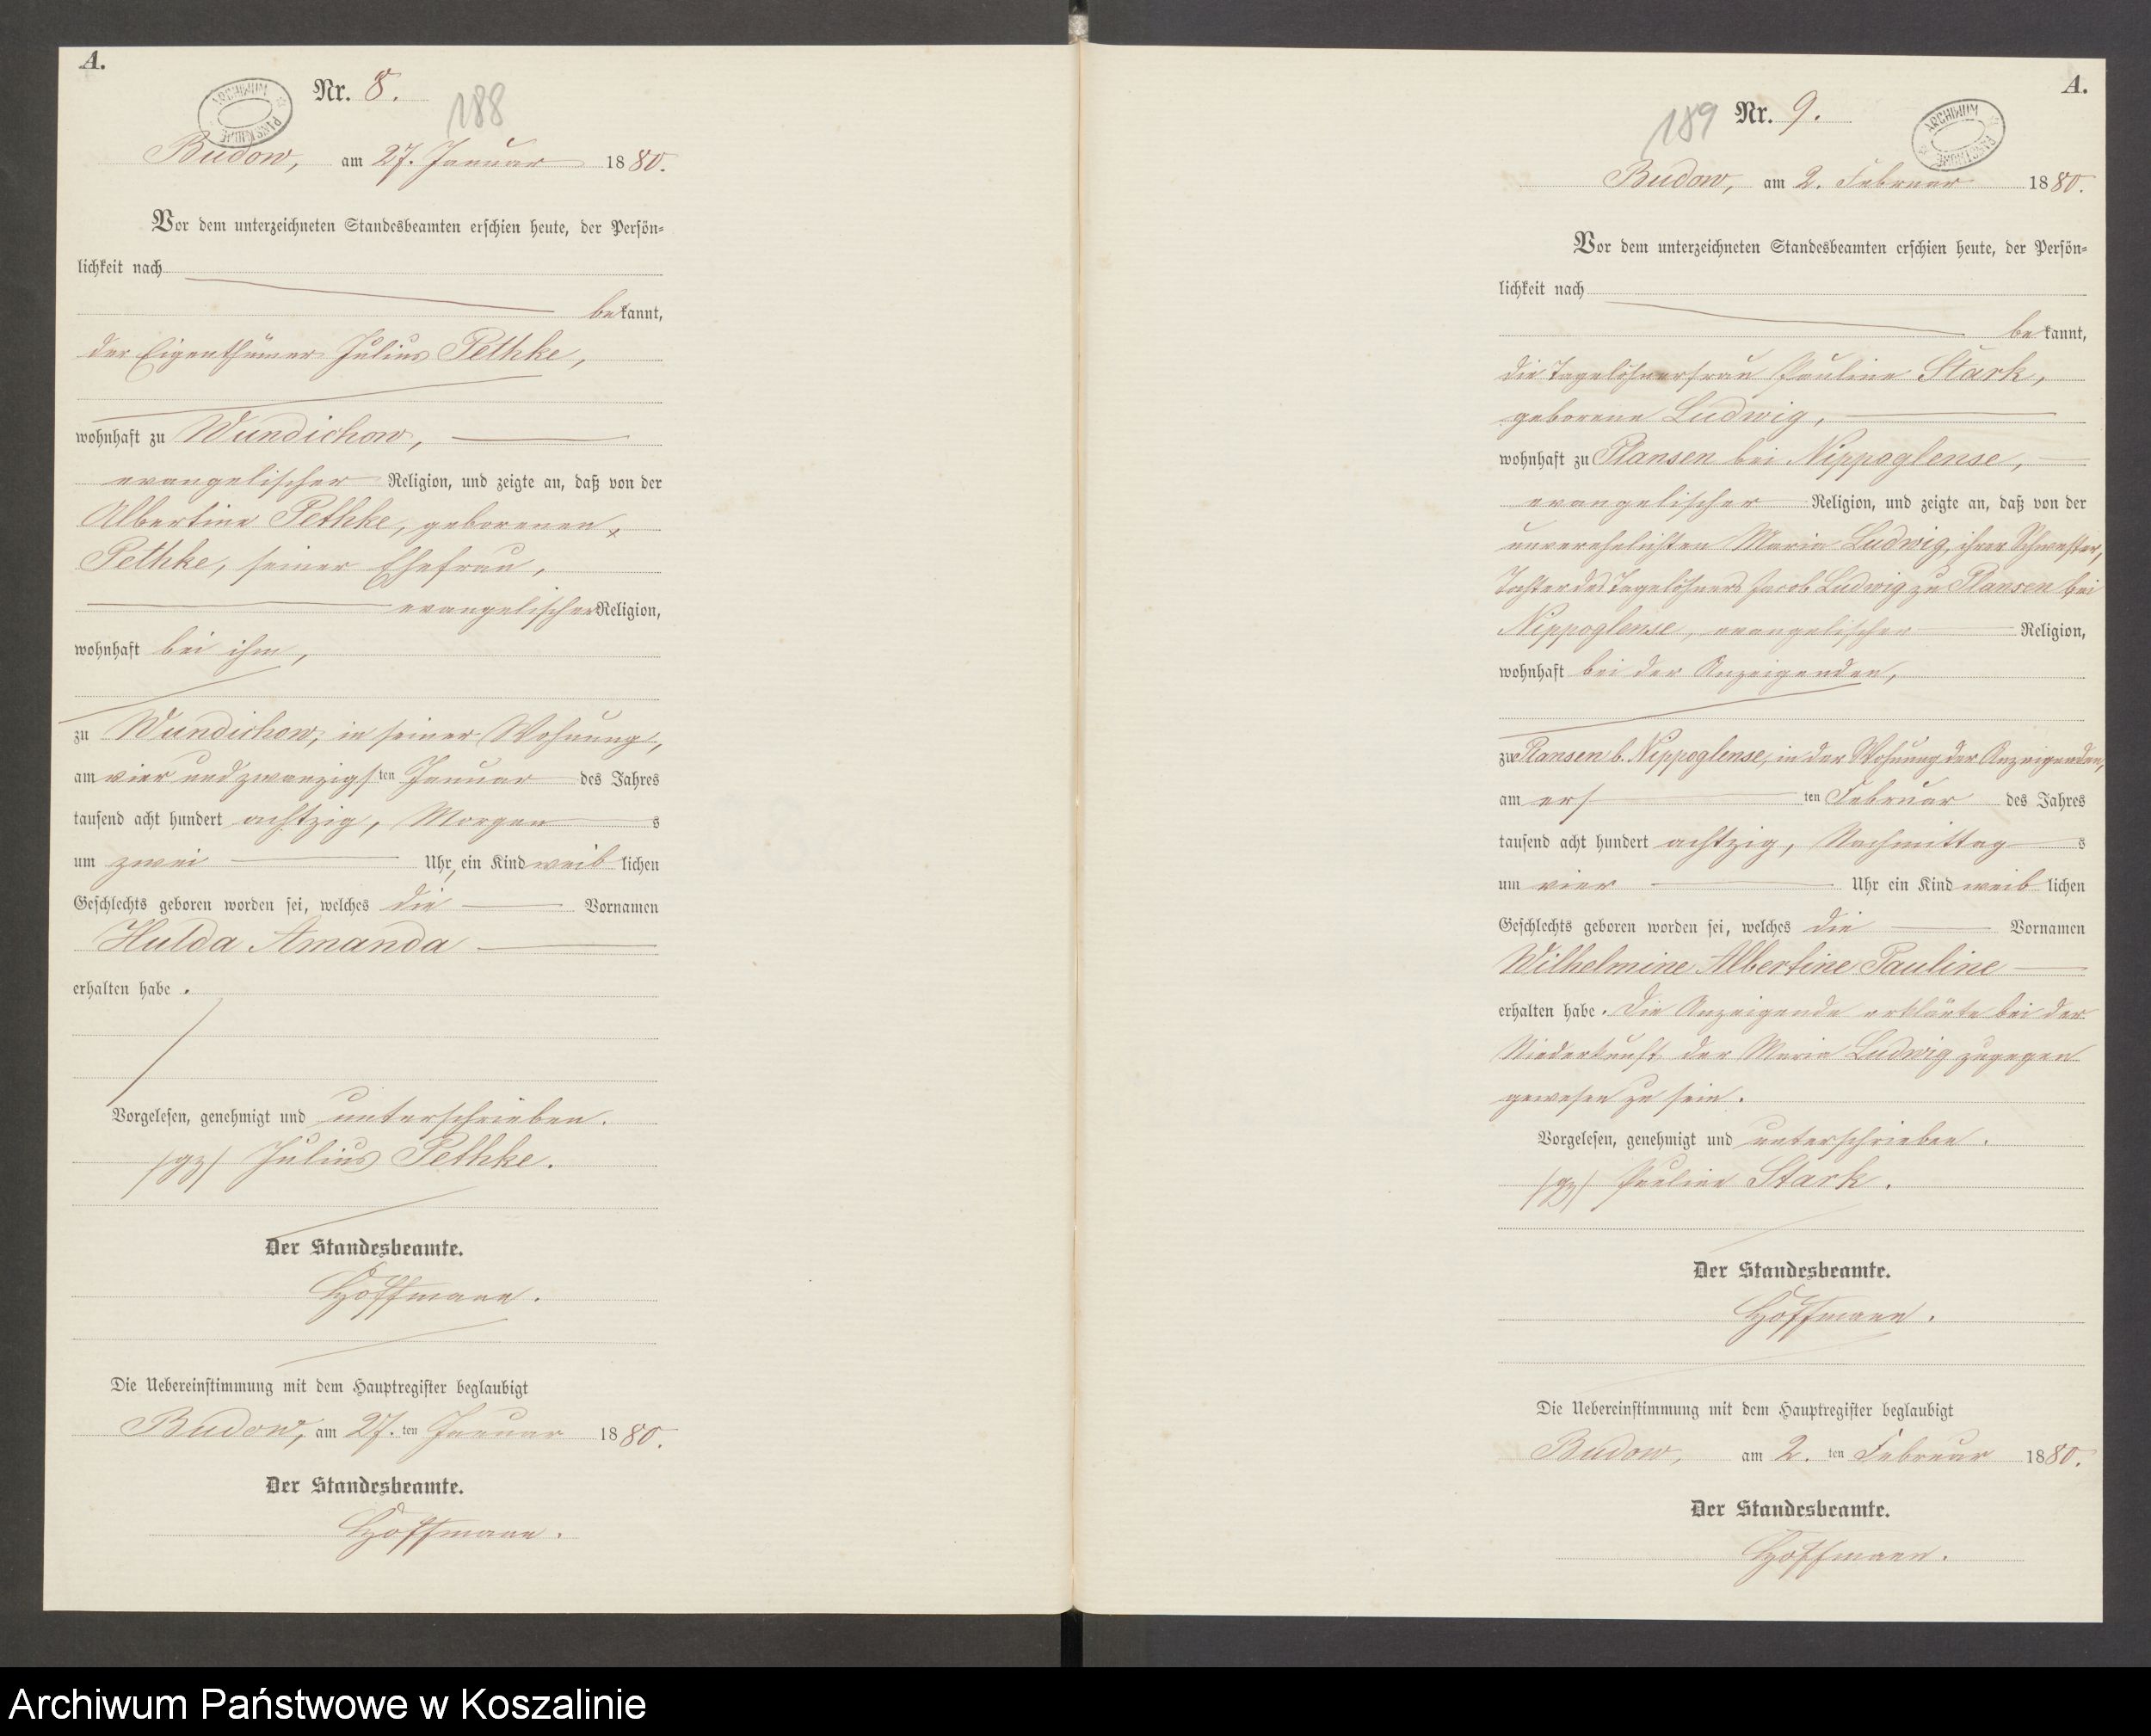 A.
Nr. 8.
188
ARCHIWUM PAŃSTWOWE
Budow, am 27. Januar 1880.
Vor dem unterzeichneten Standesbeamten erschien heute, der Persön-
lichkeit nach
bekannt,
der Eigenthümer Julius Pethke,
wohnhaft zu Wundichow,
evangelischer Religion, und zeigte an, daß von der
Albertine Pethke, geborenen
Pethke, seiner Ehefrau,
evangelischer Religion,
wohnhaft bei ihm,
zu Wundichow, in seiner Wohnung,
am vier und zwanzigsten Januar des Jahres
tausend acht hundert achtzig, Morgens
um zwei Uhr, ein Kind weiblichen
Geschlechts geboren worden sei, welches die Vornamen
Hulda Amanda
erhalten habe.
Vorgelesen, genehmigt und unterschrieben.
/gz/ Julius Pethke.
Der Standesbeamte.
Hoffmann.
Die Uebereinstimmung mit dem Hauptregister beglaubigt
Budow, am 27. ten Januar 1880.
Der Standesbeamte.
Hoffmann.
A.
189
Nr. 9.
ARCHIWUM PAŃSTWOWE
Budow, am 2. Februar 1880.
Vor dem unterzeichneten Standesbeamten erschien heute, der Persön-
lichkeit nach
bekannt,
die Tagelöhnerfrau Pauline Stark,
geborene Ludwig,
wohnhaft zu Plansen bei Nippoglense,
evangelischer Religion, und zeigte an, daß von der
unverehelichten Maria Ludwig, ihrer Schwester,
Tochter des Tagelöhners Jacob Ludwig zu Plansen bei
Nippoglense, evangelischer Religion,
wohnhaft bei der Anzeigenden,
zu Plansen b. Nippoglense, in der Wohnung der Anzeigenden,
am ersten Februar des Jahres
tausend acht hundert achtzig, Nachmittags
um vier Uhr ein Kind weiblichen
Geschlechts geboren worden sei, welches die Vornamen
Wilhelmine Albertine Pauline
erhalten habe. Die Anzeigende erklärte bei der
Niederkunft der Maria Ludwig zugegen
gewesen zu sein.
Vorgelesen, genehmigt und unterschrieben.
/gz/ Pauline Stark.
Der Standesbeamte.
Hoffmann.
Die Uebereinstimmung mit dem Hauptregister beglaubigt
Budow, am 2. ten Februar 1880.
Der Standesbeamte.
Hoffmann.
Archiwum Państwowe w Koszalinie